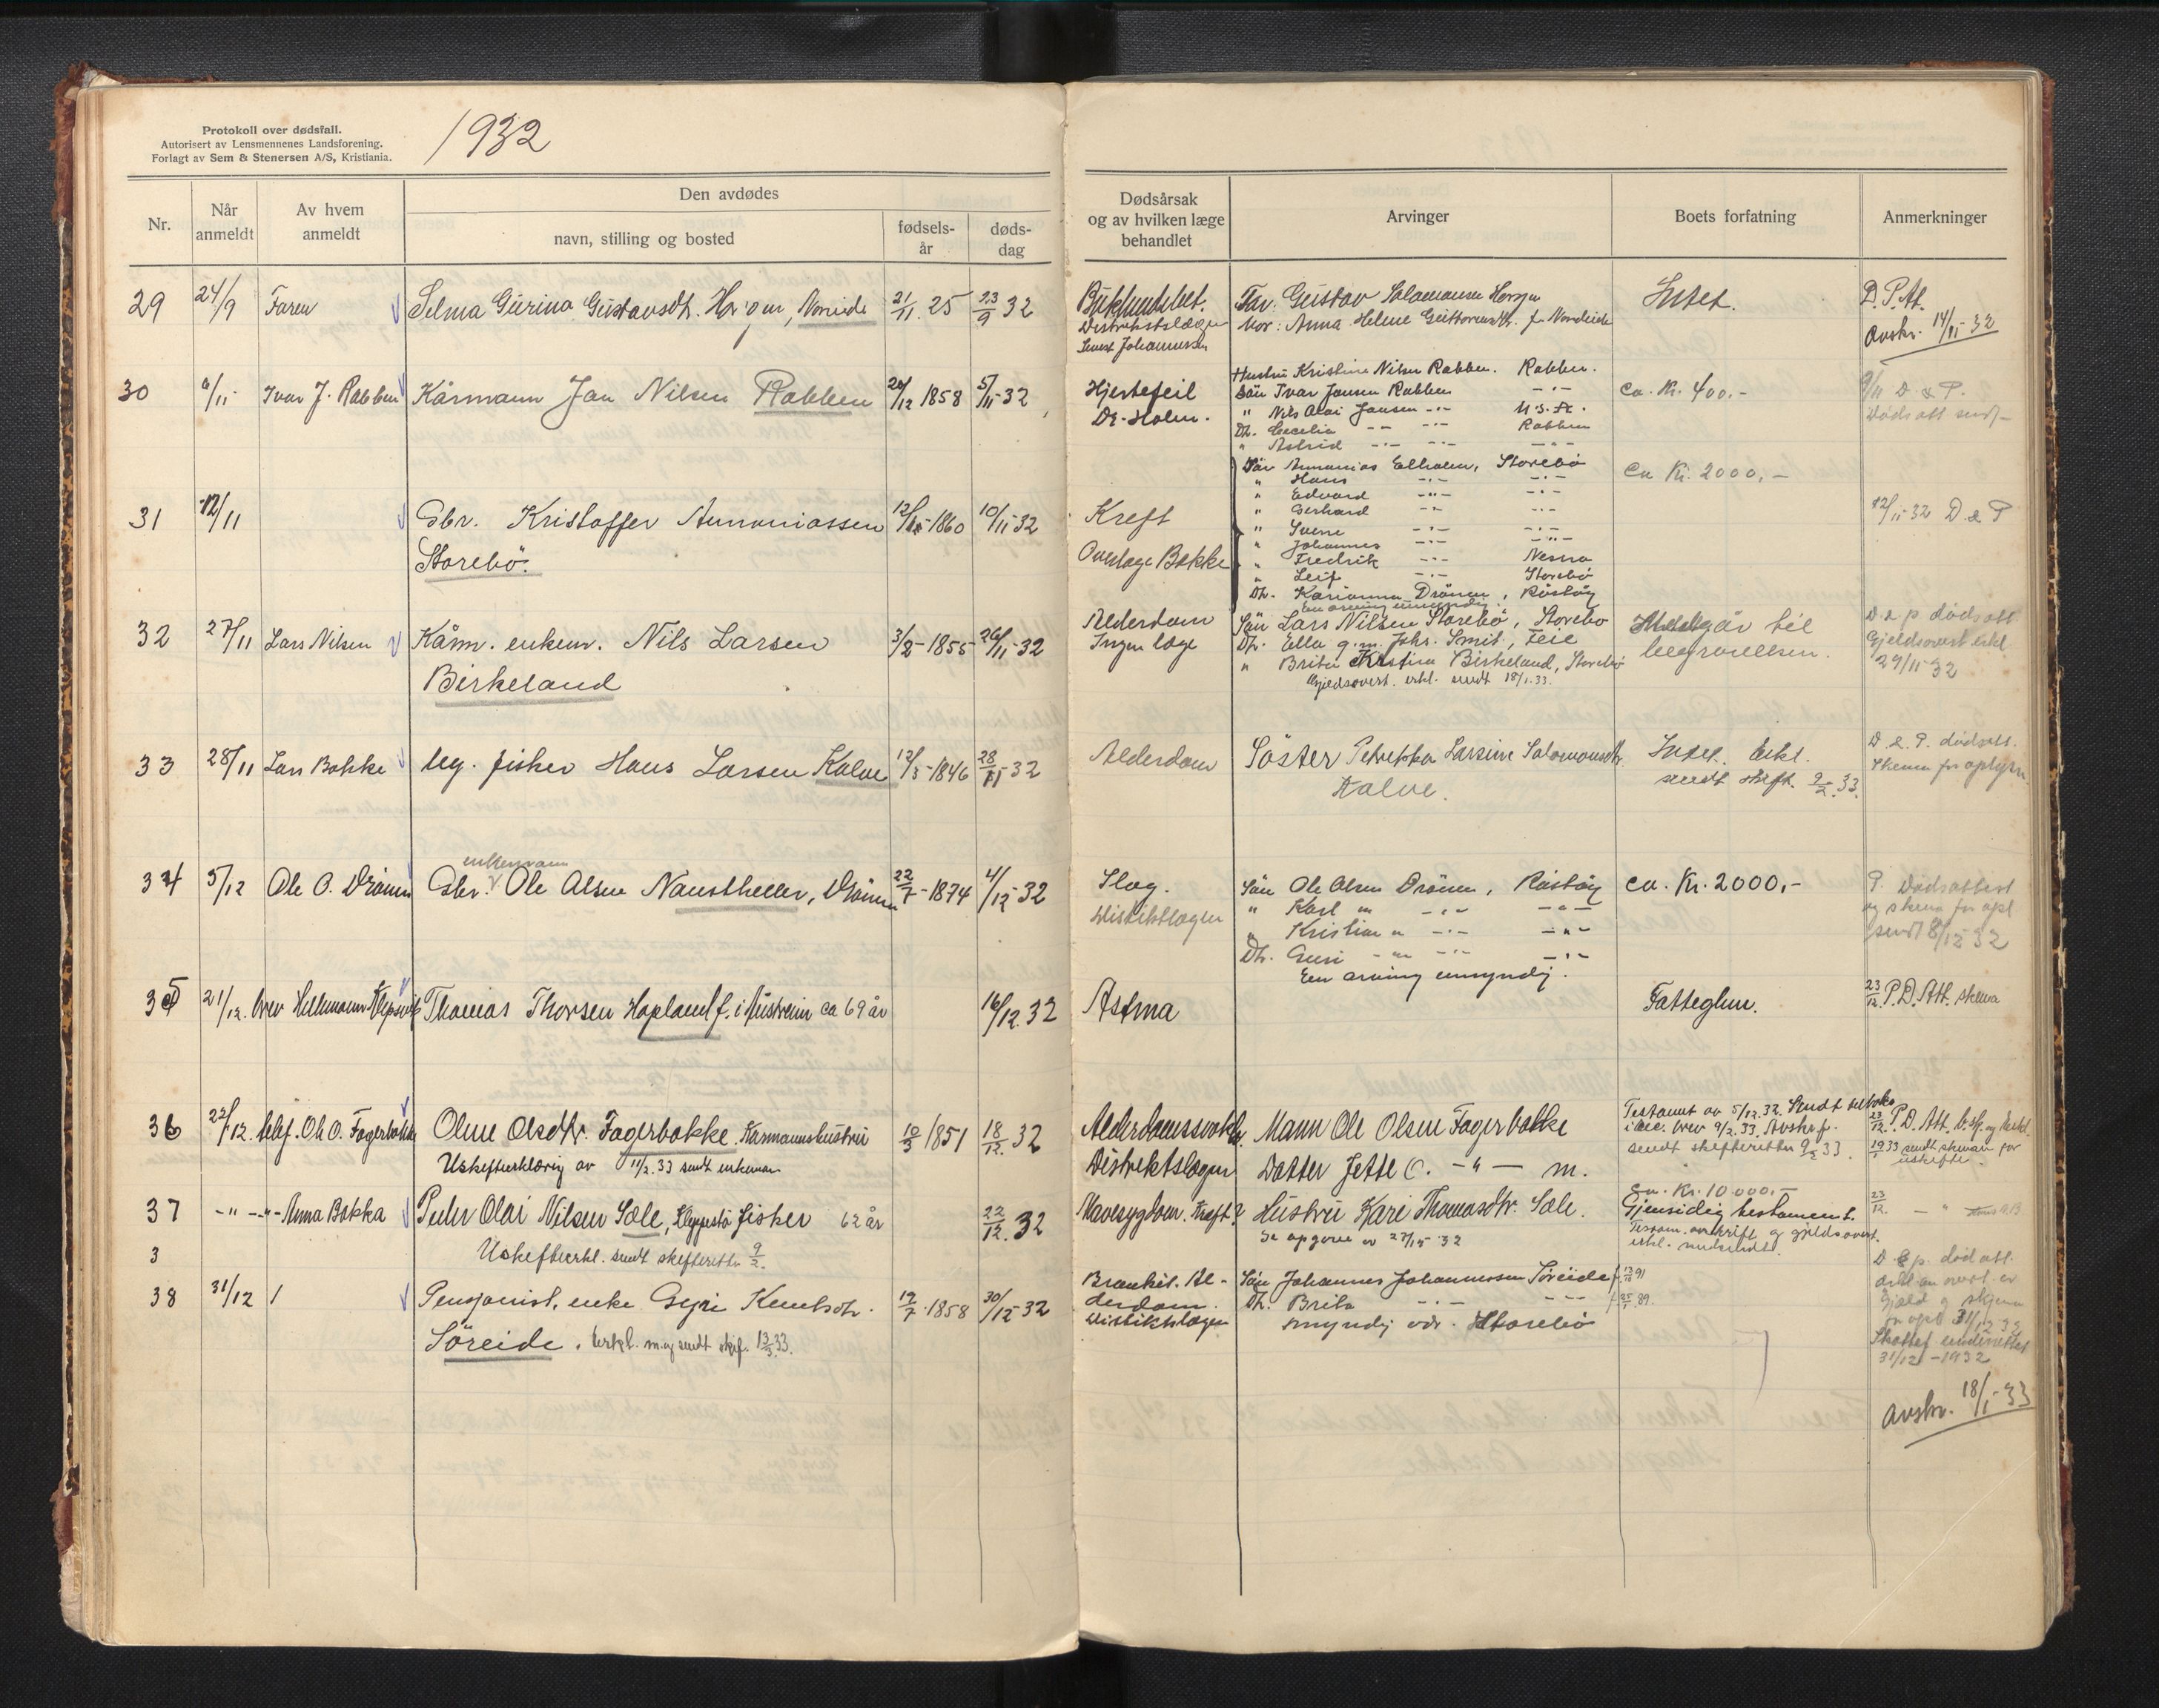 Protokoll over dødsfall.
Autorisert av Lensmennenes Landsforening.
Forlagt av Sem & Stenersen A/S, Kristiania.
1932
Nr.
Når anmeldt
Av hvem anmeldt
Den avdødes
navn, stilling og bosted
fødsels-år
døds-dag
Dødsårsak og av hvilken læge behandlet
Arvinger
Boets forfatning
Anmerkninger
29 24/9 Faren Selma Gurina Gustavsdt. Horgen, Noreide 21/11 25 23/9 32
Distriktslægen
Johannessen
Far: Gustav Salamonsen Horgen
Mor: Anna Helene f. Nordeide
Intet.
D. P. At.
Avskr. 14/11-32
30 6/11 Ivar J. Rabben Kårmann Jan Nilsen Rabben 20/12 1858 5/11 32
Hjertefeil
Dr. Holm.
Hustru Kristine Nilsen Rabben. Rabben.
Sön Ivar Jansen Rabben -"-
" Nils Olai Jansen -"- U.S.A.
Dt. Cecelia -"- -"- Rabben
" Astrid -"- -"- -"-
ca. Kr. 400.-
9/11 D & P.
Dødsatt sendt
31 12/11 Gbr. Kristoffer Annaniassen 12/10-1860 10/11-32
Storebø.
Kreft
Overlæge Bakke
Sön Annanias Elholm, Storebø
" Hans -"- -"-
" Edvard -"- -"-
" Gerhard -"- -"-
" Sverre -"- -"-
" Johannes -"- -"-
" Fredrik -"- Nesna
" Leif -"- Storebø
Dt. Karianna Drönen, Röstöy
En arving umyndig.
Ca Kr. 2000,-
12/11-32 D & P
32 27/11 Lars Nilsen Kårm. enkem. Nils Larsen 3/2-1855 26/11-32
Birkeland
Alderdom
Ingen læge
Sön Lars Nilsen Storebø, Storebø
Dt. Ella g.m. Johs. Smit, Feie
" Brita Kristina Birkeland, Storebø
Gjeldsovert. erkl. sendt 18/1.33.
Medgår til
begravelsen.
D & p dødsatt.
Gjeldsovert erkl
29/11-32
33 28/11 Lars Bakke ug. fisker Hans Larsen Kalve 12/5-1846 28/11-32
Alderdom
Söster Petrikka Larsine Salomonsdt.
Kalve.
Intet. Erkl.
sendt skift. 9/2.33.
D. & P. dødsatt.
Skema for oplysn.
34 5/12 Ole O. Drönen Gbr. enkemann Ole Olsen Naustheller, Drönen 22/7-1874 4/12-32
Slag.
Distriktlægen
Sön Ole Olsen Drönen, Röstöy
" Karl " -"- -"-
" Kristian " -"- -"-
Dt. Guri -"- -"- -"-
Een arving umyndig.
ca. Kr. 2000,-
P. Dødsattest
og skema for opl
sendt 8/12-32
35 21/12. brev Thomas Thorsen Hopland f. i Austrheim ca 69 år 16/12.32
Astma
Fattiglem.
23/12. P. D. Att. skema
36 22/12. telef. Ole O. Fagerbakke Oline Olsdtr. Fagerbakke. Kårmannshustru 10/3 1851 18/12. 32
Uskifteerklæring av 11/2.33 sendt enkeman
Distriktslægen
Mann Ole Olsen Fagerbakke
Datter Jette O. -"- m.
Testament av 5/12.32. Sendt tilbake
i rec. brev 9/2.33. Avskr. f.
sendt skifteretten 9/2 33.
23/12. P. D. Att.
sendt skema for
uskifte.
37 -"- -"- Anna Bakka Peder Olai Nilsen Sæle, Kleppestö fisker 62 år 22/12. 32
Uskifteerkl. sendt skifteretten 9/2.
Mavesygdom. Kreft?
Hustru Kari Thomasdtr. Sæle.
Se opgave av 27/12 32
ca. Kr. 10 000.-
Gjensidig testament.
Testam. avskrift og gjeldsovert.
erkl. nedsendt.
23/12. - "
3
38 31/12 1 Pensjonist, enke Gyri Knutsdtr. 12/7.1858 30/12-32
Söreide. Erkl. m.v. sendt skif. 13/3.33.
Bronkit. Alderdom.
Distriktslægen
Sön Johannes Johannessen Söreide f. 13/10 91
Dt. Brita -"- -"- f 25/1. 89.
umyndig adr. Storebø
D & p. død att.
gjeld og skjema
for opl 31/12 32
Skattef. underrettet
31/12-1932
Avskr. 18/1-33